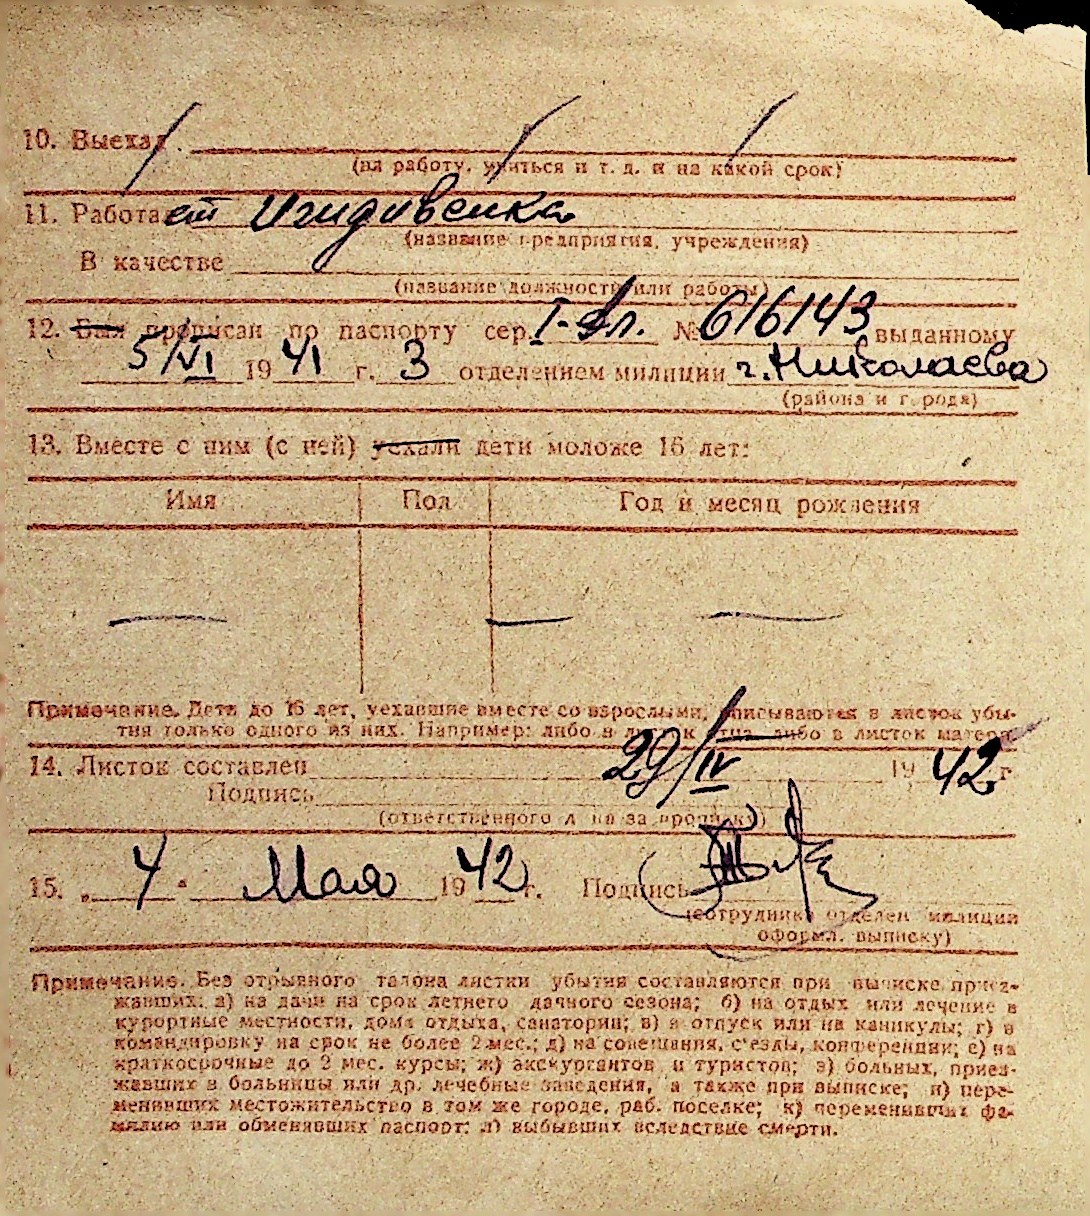 10. Выехал
(на работу, учиться и т. д. и на какой срок)
11. Работает Иждивенка
(название предприятия, учреждения)
В качестве
(название должности или работы)
12. Был прописан по паспорту сер. № 616143 выданному
5/VI 1941 г. 3 отделением милиции г. Николаева
(района и города)
13. Вместе с ним (с ней) уехали дети моложе 16 лет:
Имя Пол Год и месяц рождения
Примечание. Дети до 16 лет, уехавшие вместе со взрослыми, вписываются в листок убы-
тия только одного из них. Например: либо в листок отца, либо в листок матери
14. Листок составлен 29/IV 1942 г
Подпись
(ответственного лица за прописку)
15. „4" Мая 1942 г. Подпись
(сотрудника отделен. милиции
оформл. выписку)
Примечание. Без отрывного талона листки убытия составляются при выписке приез-
жавших: а) на дачи на срок летнего дачного сезона; б) на отдых или лечение в
курортные местности, дома отдыха, санатории; в) в отпуск или на каникулы; г) в
командировку на срок не более 2 мес.; д) на совещания, с'езды, конференции; е) на
краткосрочные до 2 мес. курсы; ж) экскурсантов и туристов; з) больных, приез-
жавших в больницы или др. лечебные заведения, а также при выписке; и) пере-
менивших местожительство в том же городе, раб. поселке; к) переменивших фа-
милию или обменявших паспорт; л) выбывших вследствие смерти.